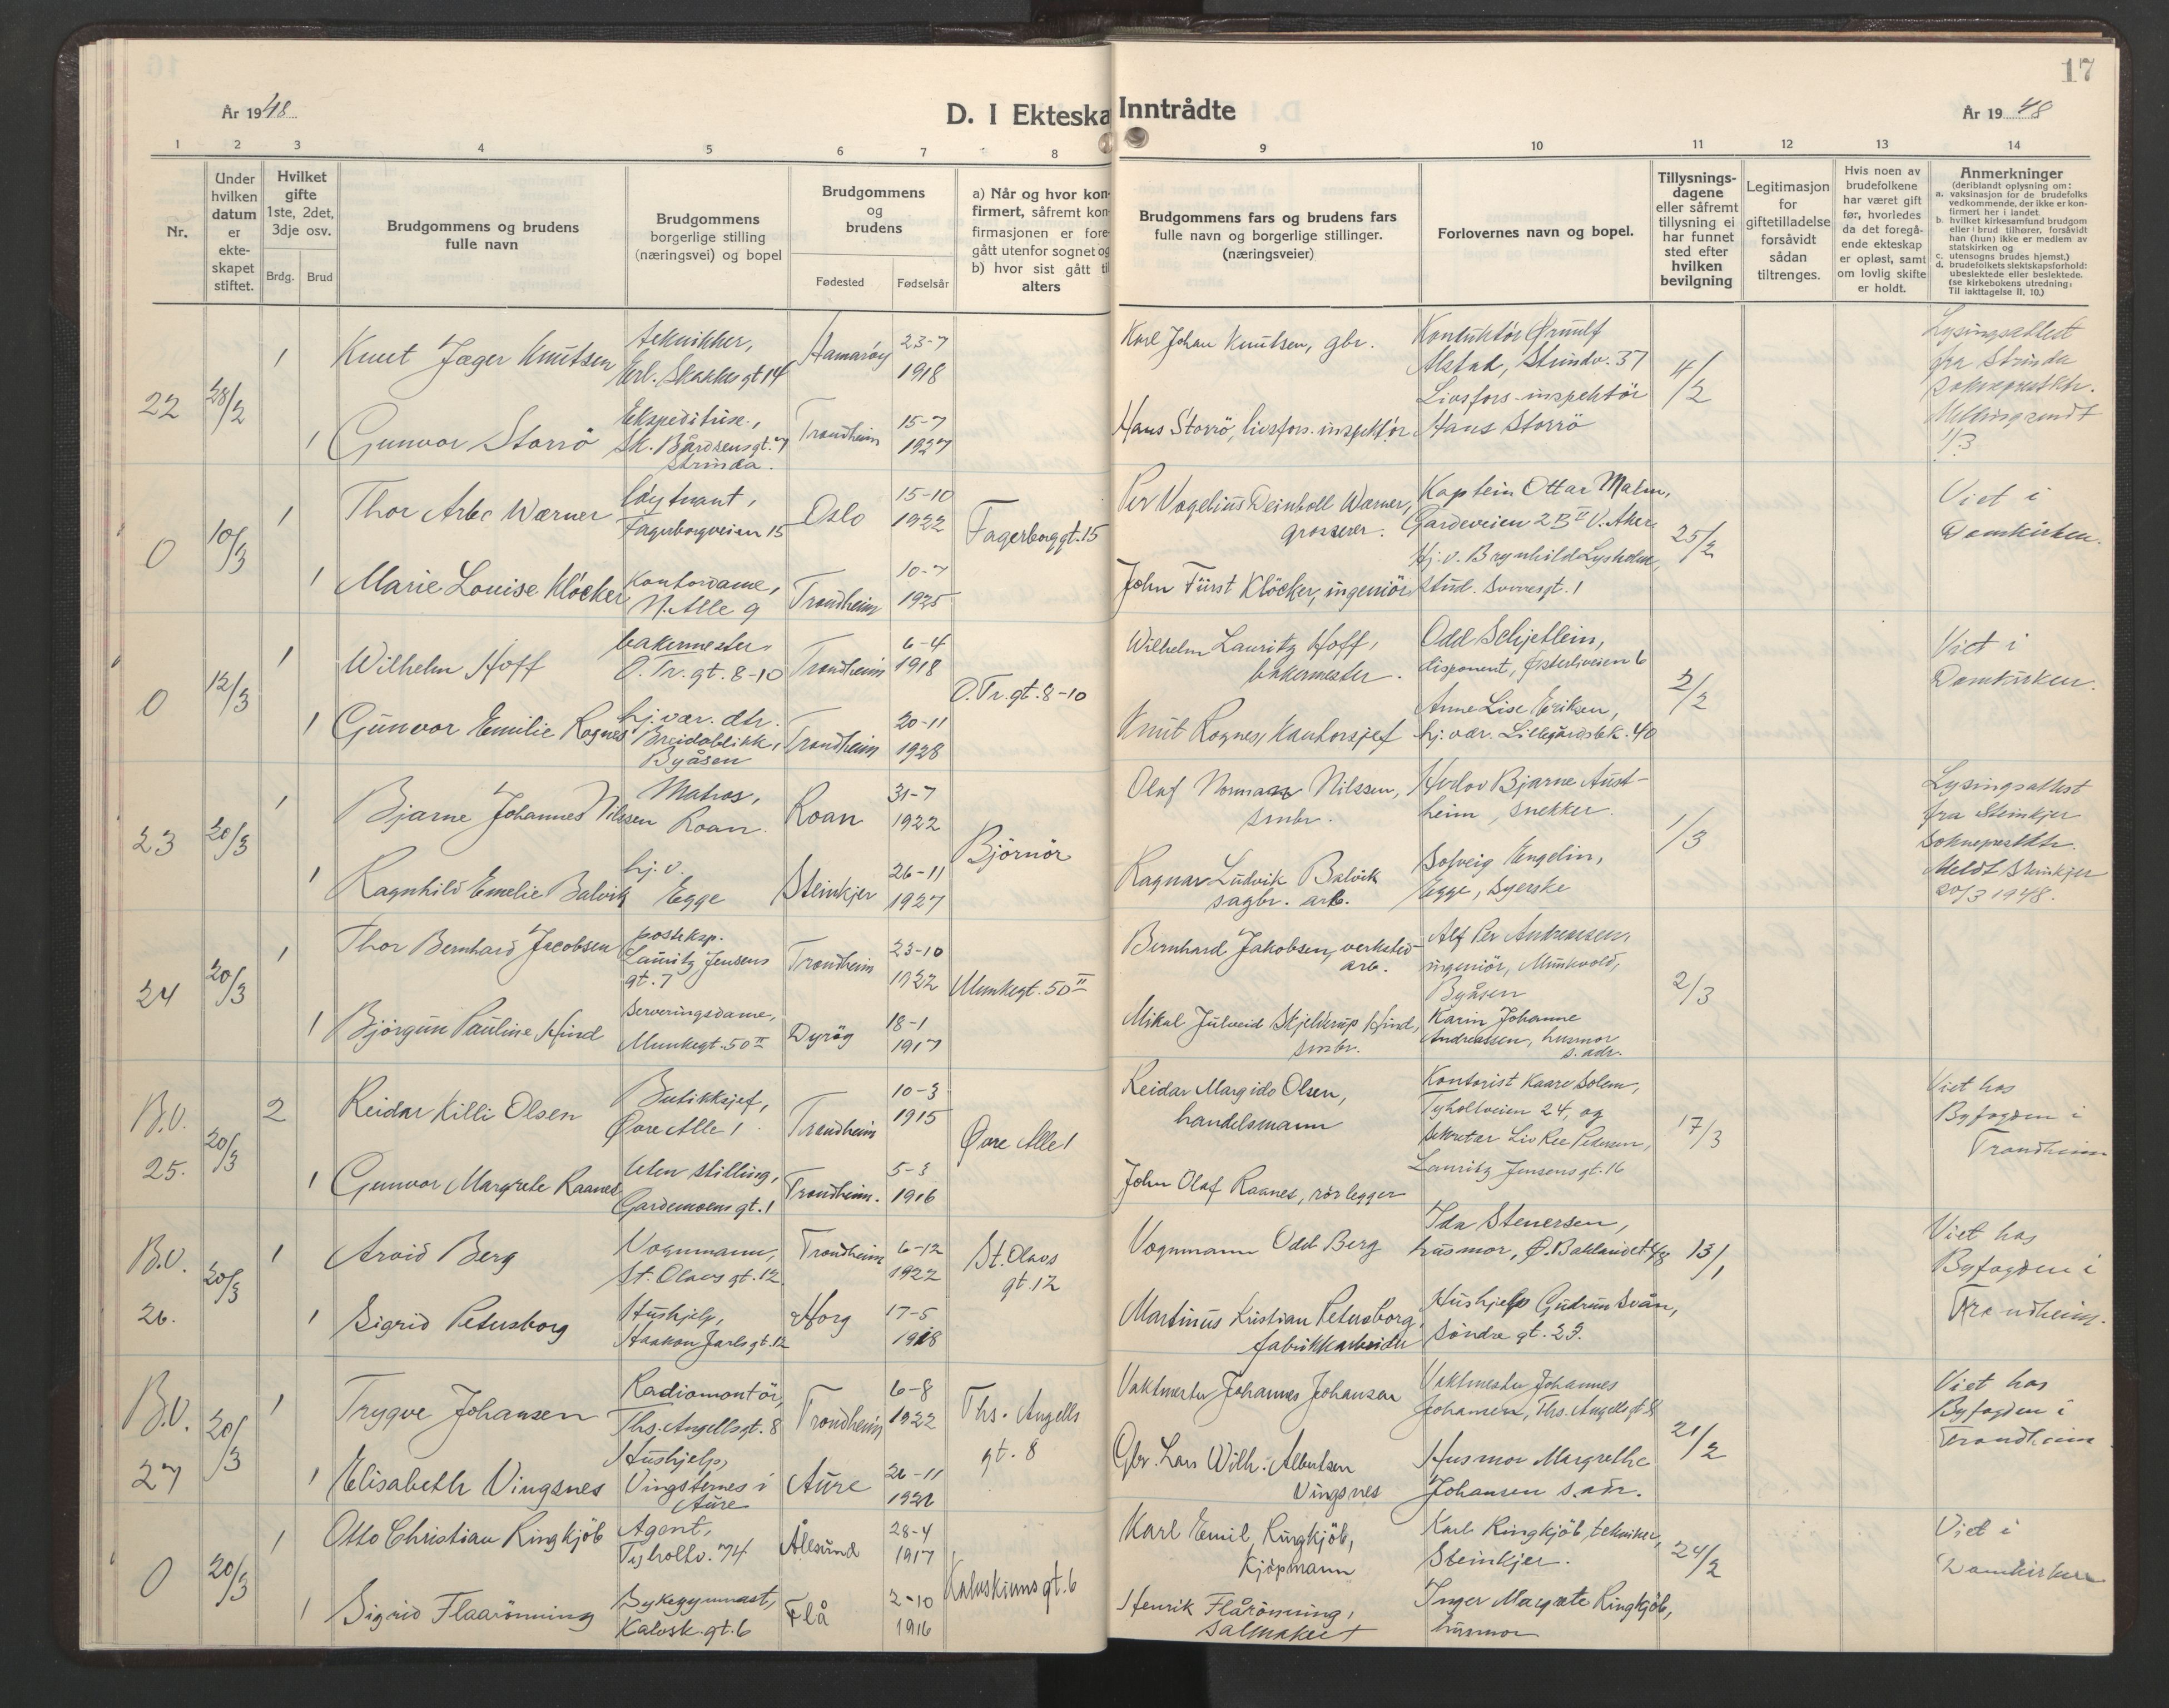 16
17
År 1948
D. I Ekteska
Inntrådte
År 1948
1 2 3 4 5 6 7 8 9 10 11 12 13 14
Nr.
Under hvilken datum er ekte- skapet stiftet.
Hvilket gifte 1ste, 2det, 3dje osv.
Brdg. Brud
Brudgommens og brudens fulle navn
Brudgommens borgerlige stilling (næringsvei) og bopel
Brudgommens og brudens
Fødested Fødselsår
a) Når og hvor kon-
firmert, såfremt kon-
firmasjonen er fore-
gått utenfor sognet og
b) hvor sist gått til
alters
Brudgommens fars og brudens fars
fulle navn og borgerlige stillinger.
(næringsveier)
Forlovernes navn og bopel.
Tillysnings-
dagene
eller såfremt
tillysning ei
har funnet
sted efter
hvilken
bevilgning
Legitimasjon
for
giftetilladelse
forsåvidt
sådan
tiltrenges.
Hvis noen av
brudefolkene
har været gift
før, hvorledes
da det foregå-
ende ekteskap
er opløst, samt
om lovlig skifte
er holdt.
Anmerkninger
(deriblandt oplysning om:
a. vaksinasjon for de brudefolks
vedkommende, der ikke er kon-
firmert her i landet.
b. hvilket kirkesamfund brudgom
eller brud tilhører, forsåvidt
han (hun) ikke er medlem av
statskirken og
c. utensogns brudes hjemst.)
d. brudefolkets slektskapsforhold:
ubeslektede eller beslektede.
(se kirkebokens utredning:
Til iakttagelse II, 10.)
22 28/2
1 Knut Jæger Knutsen
tekniker,
Erl. Skakkes gt 14
Hamarøy
23-7
1918
Karl Johan Knutsen, gbr.
Konduktör Ørnulf
Alstad, Strindv. 37
4/2
Lysingsattest
fra Strinda
sokneprestktr.
1 Gunvor Storrö
Ekspeditrise,
Sk. Bårdsensgt. 7
Strinda.
Trondheim
15-7
1927
Hans Storrö, livsfors. inspektör
Livsfors-inspektör
Hans Storrö
1/3
0 10/3
1 Thor Arbo Wærner
löytnant,
Fagerborgveien 15
Oslo
15-10
1922
Fagerborggt. 15
Per Vogelius Deinboll Warner,
grosserer.
Kaptein Ottar Malm,
Gardeveien 2 B II V. Aker.
25/2
Viet i
Domkirken.
1 Marie Louise Klöcker
Kontordame,
N. Alle 9
Trondheim
10-7
1925
John Fürst Klöcker, ingeniör
Hj. v. Brynhild Lysholm,
stud. Sverresgt. 1
0 12/3
1 Wilhelm Hoff
bakermester
O. Tr. gt. 8-10
Trondheim
6-4
1918
O. Tr. gt. 8-10
Wilhelm Lauritz Hoff,
bakermester.
Odd Schjetlein,
disponent, Østerliveien 6
2/2
Viet i
Domkirken.
1 Gunvor Emilie Rognes
hj. vær. dtr.
Breidablikk,
Byåsen
Trondheim
20-11
1928
Knut Rognes, Kontorsjef
Anne Lise Eriksen,
hj. vær. Lillegårdsbk. 40
23 20/3
1 Bjarne Johannes Nilssen
Matros,
Roan.
Roan
31-7
1922
Björnör
Olaf Normann Nilssen,
smbr.
Herlov Bjarne Aust-
heim, snekker.
1/3
Lysingsattest
fra Steinkjer
sokneprestktr.
Meldt Steinkjer
20/3 1948.
1 Ragnhild Emelie Balvik
hj. v.
Egge
Steinkjer
26-11
1927
Ragnar Ludvik Balvik
sagbr. arb.
Solveig Engelin,
Egge, syerske
24 20/3
1 Thor Bernhard Jacobsen
posteksp.
Lauritz Jensens
gt. 7
Trondheim
23-10
1922
Munkegt. 50 II
Bernhard Jakobsen, verksted-
arb.
Alf Per Andreassen,
ingeniör, Munkvold,
Byåsen
2/3
1 Björgun Pauline Hind
Serveringsdame,
Munkegt. 50 II
Dyröy
18-1
1917
Mikal Julveid Skjelderup Hind,
smbr.
Karin Johanne
Andreassen, husmor
s. adr.
B.V. 25. 20/3
2 Reidar Killi Olsen
Butikksjef,
Øvre Alle 1
Trondheim
10-3
1915
Øvre Alle 1
Reidar Margido Olsen,
handelsmann
Kontorist Kaare Solem,
Tyholtveien 24, og
17/3
Viet hos
Byfogden i
Trondheim
1 Gunvor Margrete Raanes
uten stilling,
Gardemoens gt. 1
Trondheim.
5-3
1916
John Olaf Raanes, rörlegger
sekretær Liv Ree Pedersen,
Lauritz Jensensgt. 16
B.V. 26. 20/3
1 Arvid Berg
Vognmann,
St. Olavs gt. 12
Trondheim
6-12
1922
St. Olavs
gt. 12
Vognmann Odd Berg
Ida Stenersen,
husmor, Ø. Baklandet
13/1
Viet hos
Byfogden i
Trondheim.
1 Sigrid Petersborg
Hushjelp,
Haakon Jarls gt. 12
Horg
17-5
1918
Martinus Kristian Petersborg,
fabrikkarbeider
Hushjelp Gudrun Svån,
Söndre gt. 23.
B.V. 27 20/3
1 Trygve Johansen
Radiomontör,
Ths. Angellsgt. 8
Trondheim
6-8
1922
Ths. Angells
gt. 8
Vaktmester Johannes Johansen
Vaktmester Johannes
Johansen, Ths. Angells gt 8
21/2
Viet hos
Byfogden i
Trondheim
1 Elisabeth Vingsnes
Hushjelp,
Vingsternes i
Aure
Aure
26-11
Gbr. Lars Wilh. Albertsen
Vingsnes
Husmor Margrethe
Johansen s. adr.
0 20/3
1 Otto Christian Ringkjöb
Agent,
Tyholtv. 74
Ålesund
28-4
1917
Kalvskinnsgt. 6
Karl Emil Ringkjöb,
Kjöpmann
Karl Ringkjöb, tekniker,
Steinkjer.
24/2
Viet i
Domkirken
1 Sigrid Flaarönning
Sykegymnast,
Kalvsk. gt. 6
Flå
2-10
1916
Henrik Flårönning,
salmaker
Inger Margrete Ringkjöb,
husmor